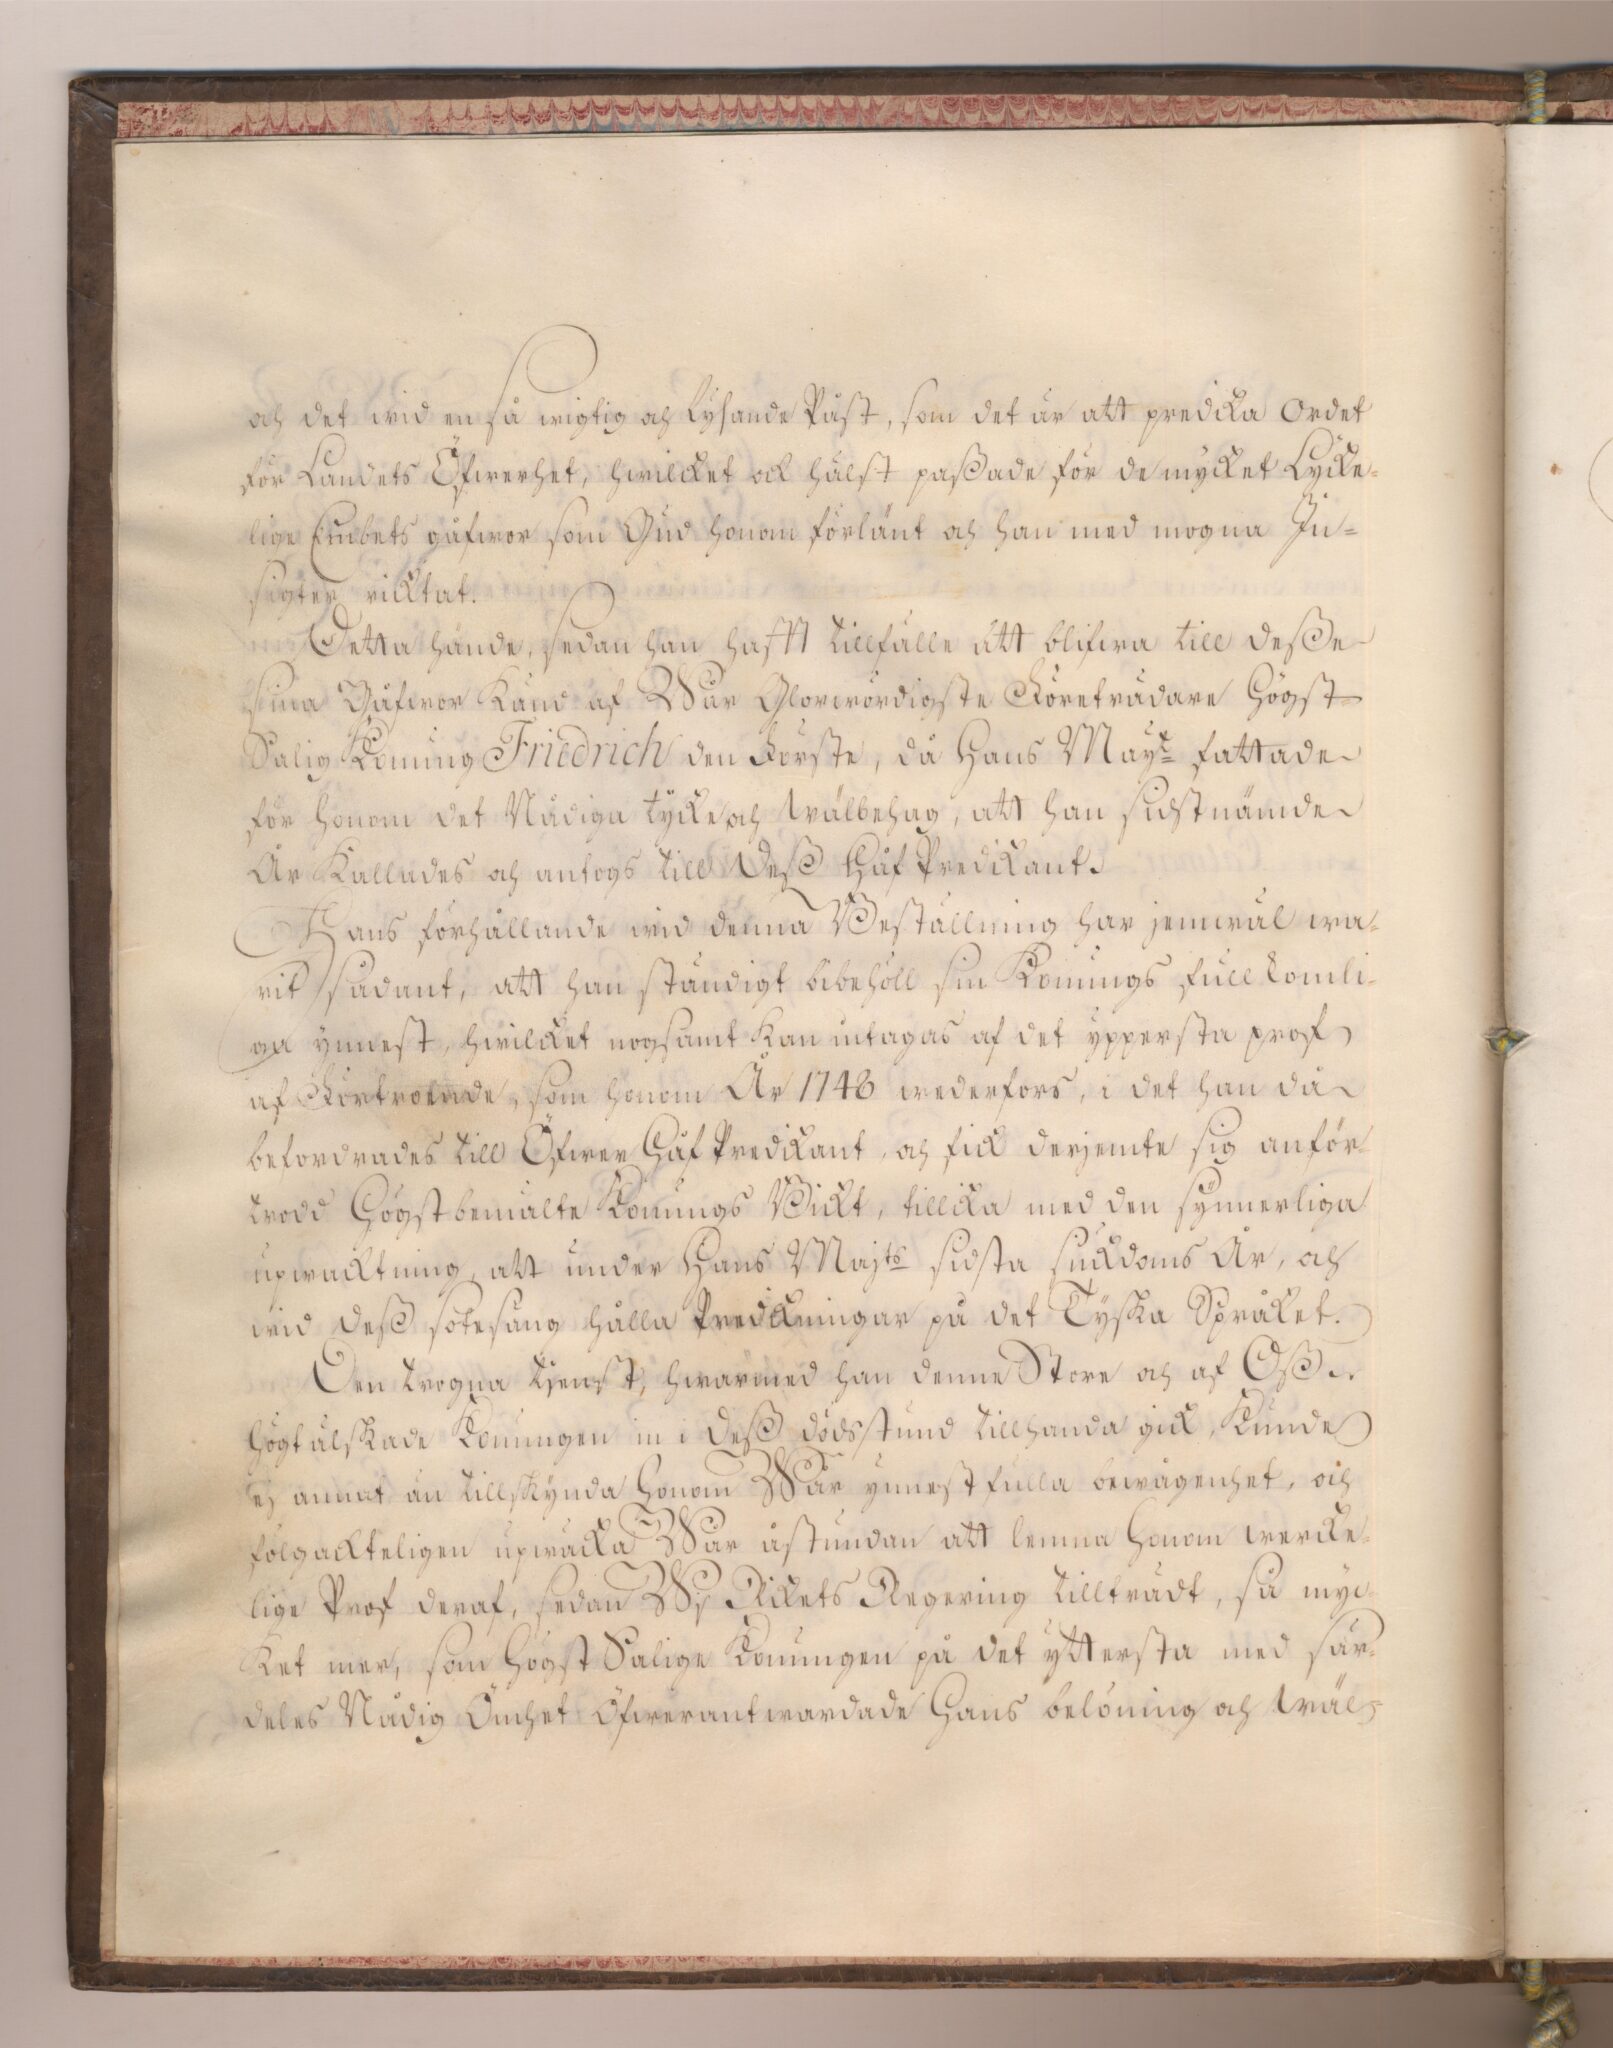 och det wid en så wigtig och lysande Påst, som det är att predika Ordet
för Landets Öfwerhet, hwilcket ock hälst paßade för de mycket Lycke-
lige Embets gåfwor som Gud honom förlänt och han med mogna In-
sigter ricktat.
Detta hände, sedan han hafft tillfälle att blifwa till deße
sina Gåfwor Känd af Wår Glorwördigste Företrädare Högst-
Salig Konung Friedrich den Förste, då Hans Mayt fattade
för honom det Nådiga tycke och wälbehag, att han sidstnämde
År Kallades och antogs till Deß Håf Predikant.
Hans förhållande wid denna Beställning har jemwäl wa-
rit sådant, att han ständigt bibehöll sin Konungs fullkomli-
ga ynnest, hwilcket nogsamt Kan intagas af det yppersta prof
af Förtroende, som honom År 1748 wederfors, i det han då
befordrades till Öfwer Håf Predikant, och fick derjemte sig anför-
trodd Högstbemälte Konungs Bickt, tillika med den synnerliga
upwacktning, att under Hans Majts sidsta sjukdoms År, och
wid deß sotesäng hålla Predikningar på det Tyska Språket.
Den trogna tjenst, hwarmed han denne Store och af Oß
högt älskade Konungen in i deß dödsstund tillhanda gick, Kunde
ej annat än tillskynda Honom Wår ynnestfulla bewågenhet, och
fölgackteligen upwäcka Wår åstundan att lemna Honom wercke-
lige Prof deraf, sedan Wj Rikets Regering tillträdt, så myc-
ket mer, som Högst Salige Konungen på det yttersta med sär-
deles Nådig Ömhet Öfwerantwardade Hans belöning och wäl-